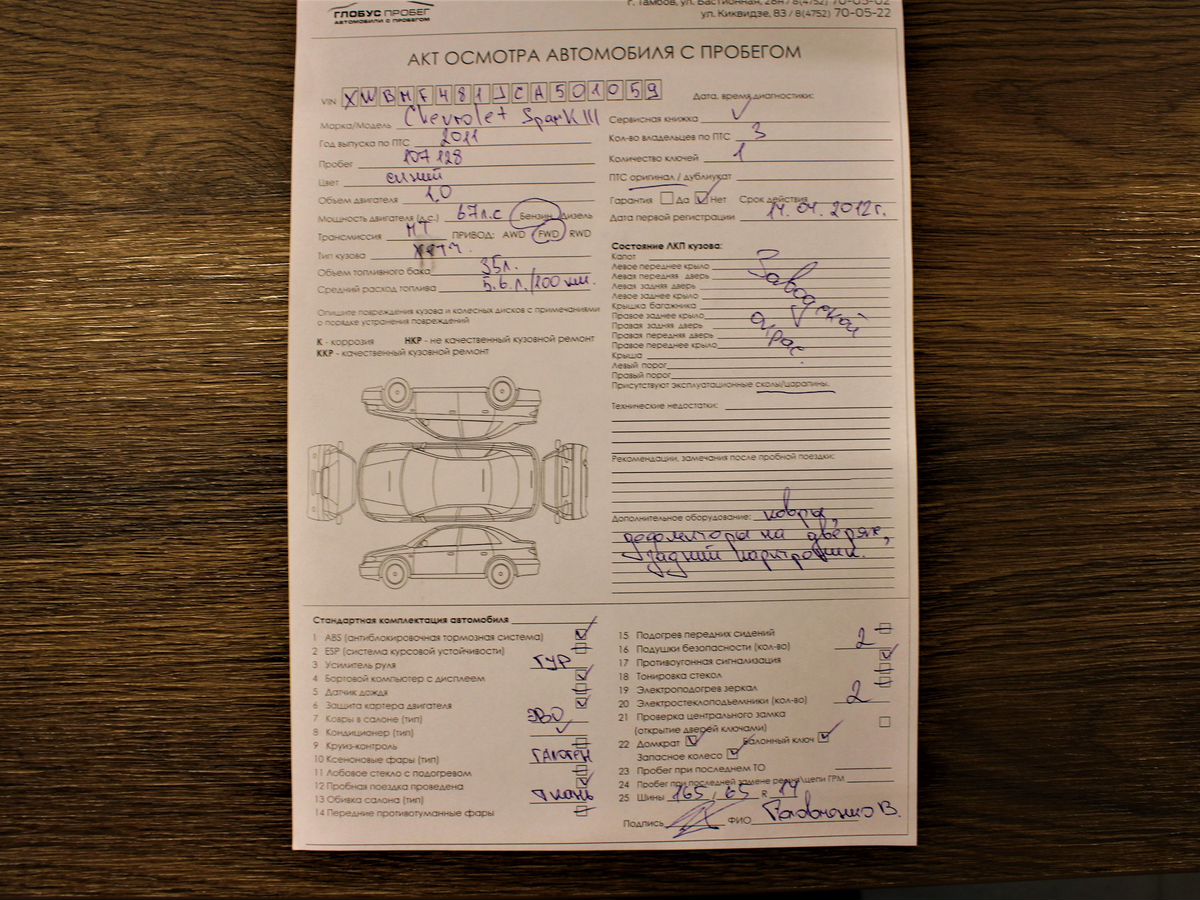 ГЛОБУС ПРОБЕГ
АВТОМОБИЛИ С ПРОБЕГОМ
г. Тамбов, ул. Бастионная, 28П / 8(4752) 70-05-02
ул. Киквидзе, 83 / 8(4752) 70-05-22
АКТ ОСМОТРА АВТОМОБИЛЯ С ПРОБЕГОМ
VIN XWBMF481JCA501059
Марка/Модель Chevrolet Spark III
Год выпуска по ПТС 2011
Пробег 107 128
Цвет синий
Объем двигателя 1,0
Мощность двигателя (л.с.) 67 л.с Бензин Дизель
Трансмиссия МТ ПРИВОД: AWD FWD RWD
Тип кузова
Объем топливного бака 35л.
Средний расход топлива 5.6 л./100 км.
Опишите повреждения кузова и колесных дисков с примечаниями
о порядке устранения повреждений
К - коррозия НКР - не качественный кузовной ремонт
ККР - качественный кузовной ремонт
Дата, время диагностики:
Сервисная книжка
Кол-во владельцев по ПТС 3
Количество ключей 1
ПТС оригинал / дубликат
Гарантия Да Нет Срок действия
Дата первой регистрации 14.04.2012г.
Состояние ЛКП кузова:
Капот
Левое переднее крыло
Левая передняя дверь
Левая задняя дверь
Левое заднее крыло
Крышка багажника
Правое заднее крыло
Правая задняя дверь
Правая передняя дверь
Правое переднее крыло
Крыша
Левый порог
Правый порог
Заводской
окрас.
Присутствуют эксплуатационные сколы/царапины.
Технические недостатки:
Рекомендации, замечания после пробной поездки:
Дополнительное оборудование: ковры,
дефлекторы на дверях,
задний парктроник.
Стандартная комплектация автомобиля
1 ABS (антиблокировочная тормозная система)
2 ESP (система курсовой устойчивости)
3 Усилитель руля ГУР
4 Бортовой компьютер с дисплеем
5 Датчик дождя
6 Защита картера двигателя
7 Ковры в салоне (тип) ЭВО
8 Кондиционер (тип)
9 Круиз-контроль
10 Ксеноновые фары (тип) ГАЛОГЕН
11 Лобовое стекло с подогревом
12 Пробная поездка проведена
13 Обивка салона (тип) Ткань
14 Передние противотуманные фары
15 Подогрев передних сидений
16 Подушки безопасности (кол-во) 2
17 Противоугонная сигнализация
18 Тонировка стекол
19 Электроподогрев зеркал
20 Электростеклоподъемники (кол-во) 2
21 Проверка центрального замка
(открытие дверей ключами)
22 Домкрат Балонный ключ
Запасное колесо
23 Пробег при последнем ТО
24 Пробег при последней замене ремня\цепи ГРМ
25 Шины 165 / 65 R 14
Подпись ФИО В.